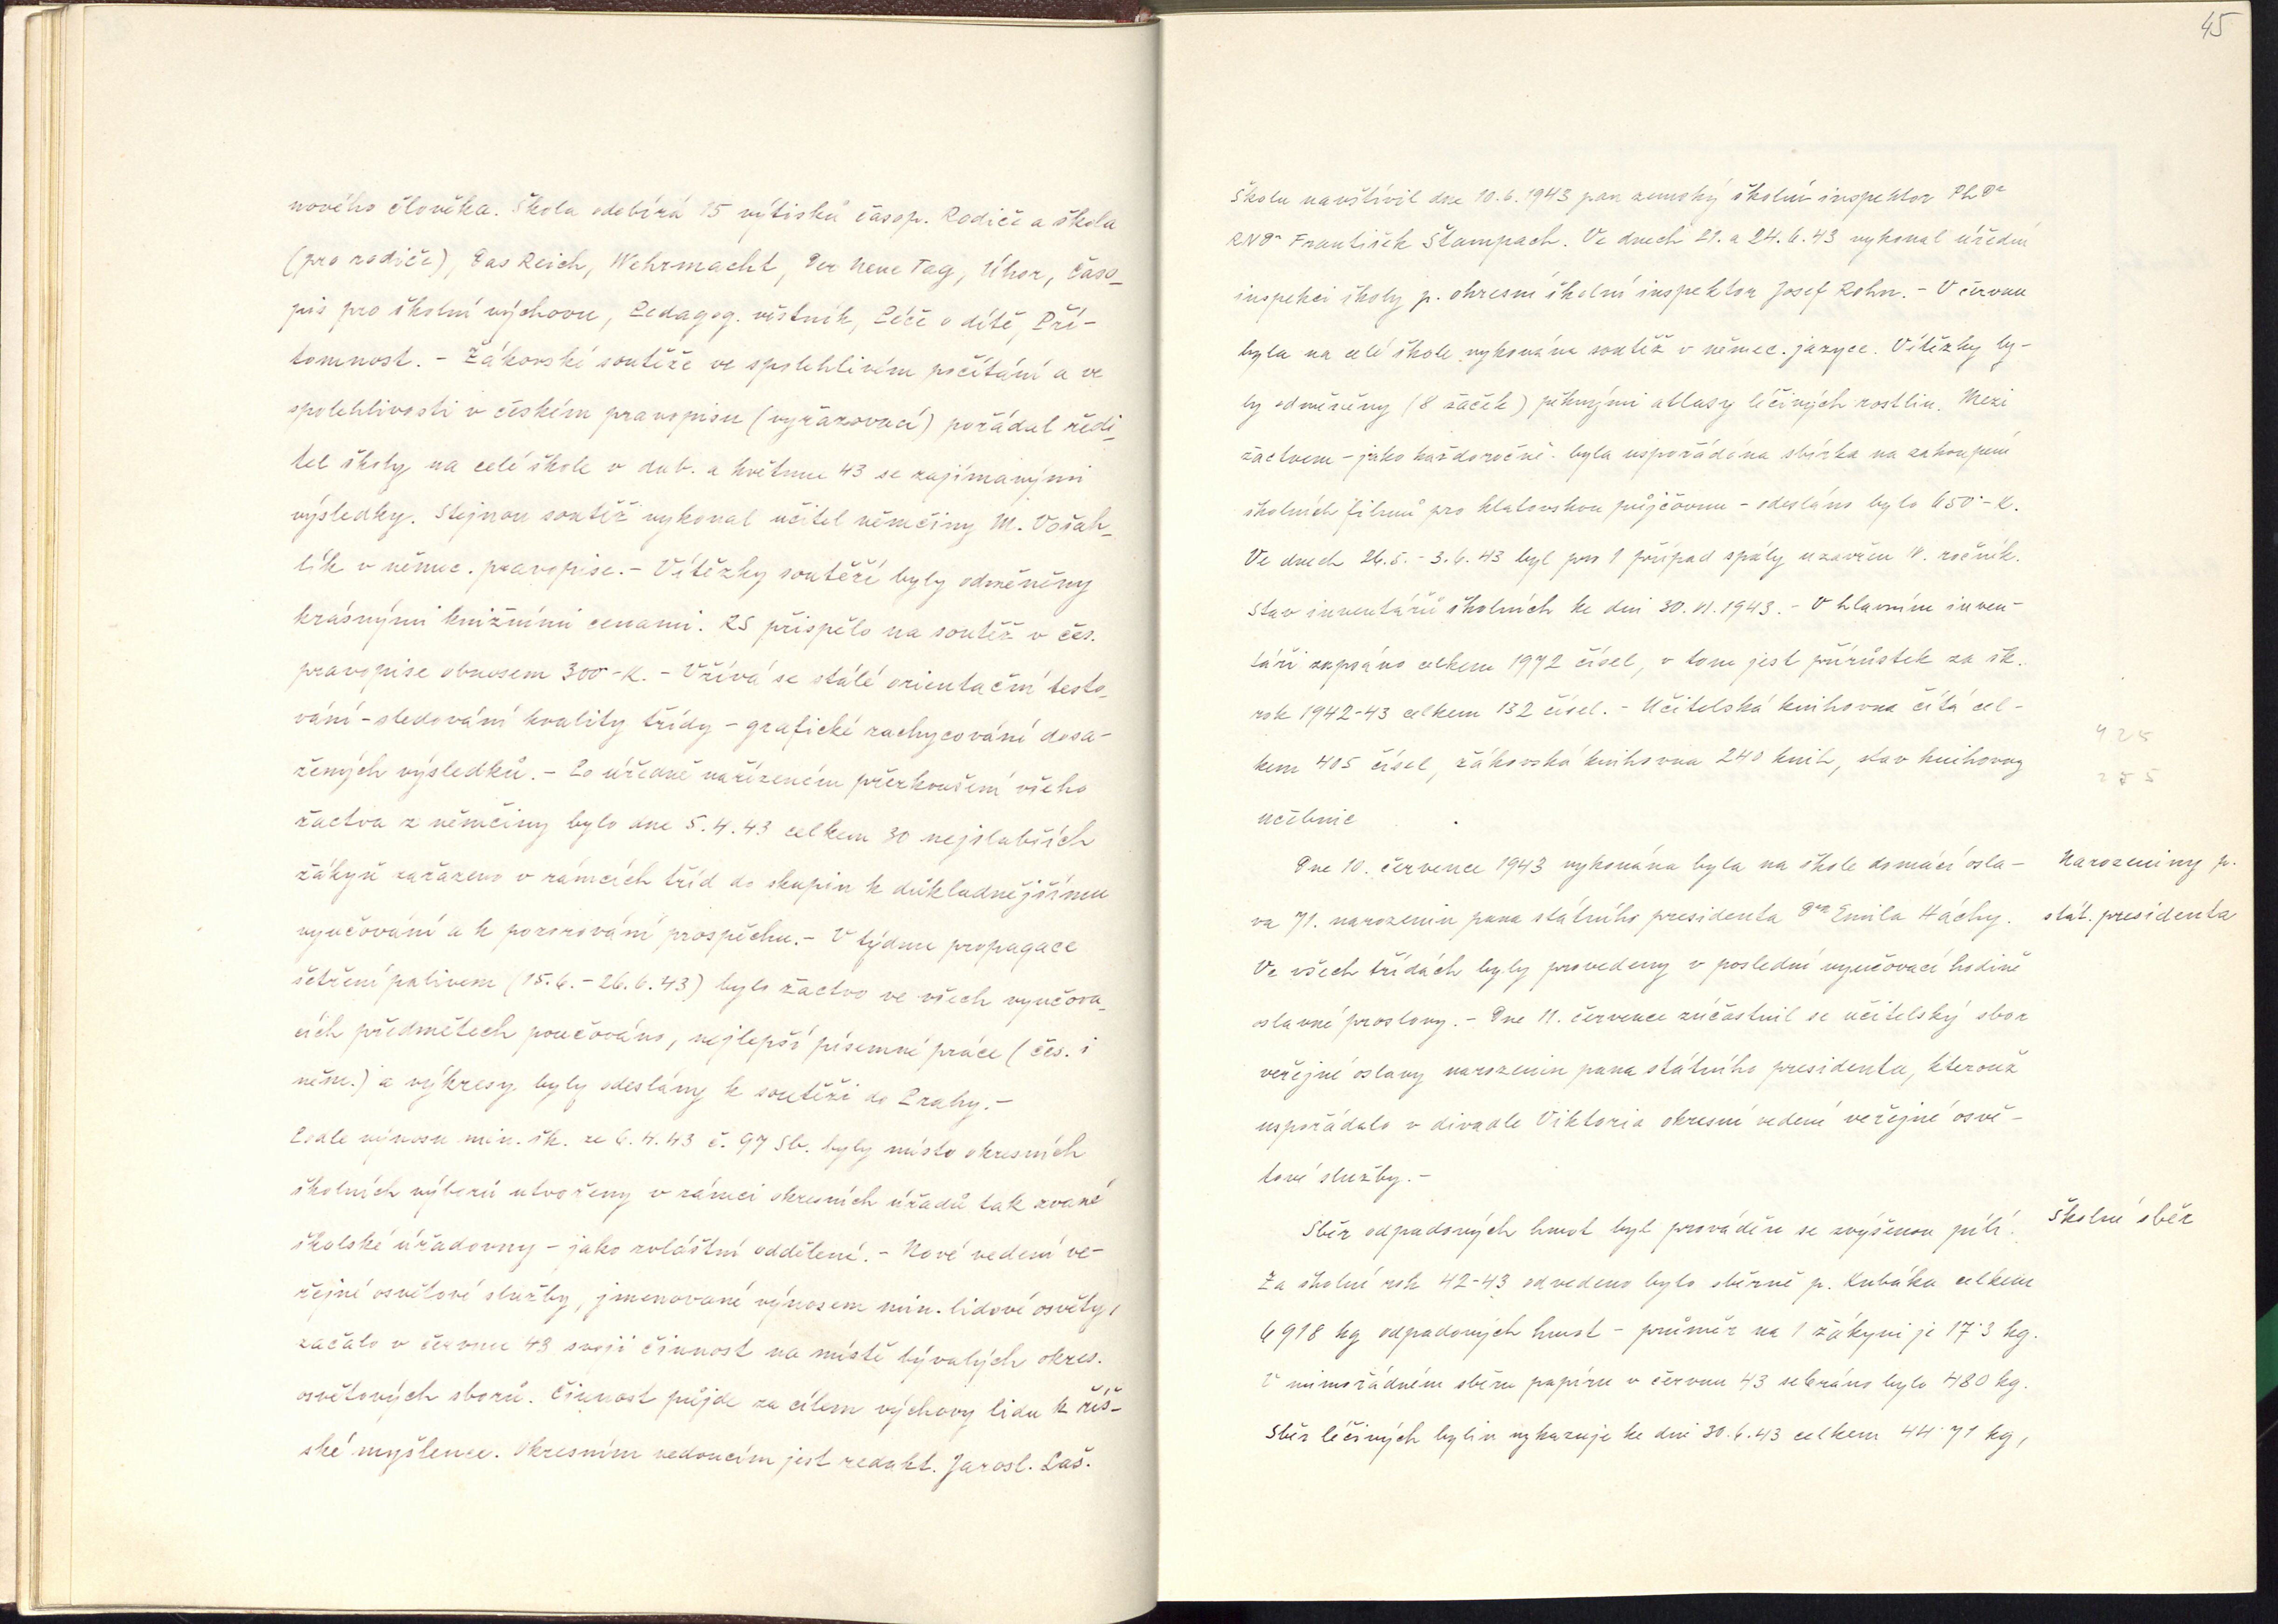 nového člověka. Škola odebírá 15 výtisků časop. Rodiče a škola
(pro rodiče), Das Reich, Wehrmacht, Der Neue Tag, Úhor, Časo-
pis pro školní výchovu, Pedagog. věstník, Péče o dítě, Pří-
tomnost. - Žákovské soutěže ve spolehlivém počítání a ve
spolehlivosti v českém pravopisu (vyřazovací) pořádal ředi-
tel školy na celé škole v dub. a květnu 43 se zajímavými
výsledky. Stejnou soutěž vykonal učitel němčiny M. Vošah-
lík v němec. pravopise. - Vítězky soutěží byly odměněny
krásnými knižními cenami. RS přispělo na soutěž v čes.
pravopise obnosem 300·-K. - Užívá se stálé orientační testo-
vání - sledování kvality třídy - grafické zachycování dosa-
žených výsledků. - Po úředně nařízeném přezkoušení všeho
žactva z němčiny bylo dne 5.4.43 celkem 30 nejslabších
žákyň zařazeno v rámcích tříd do skupin k důkladnějšímu
vyučování a k pozorování prospěchu. - V týdnu propagace
šetření palivem (15.6.-26.6.43) bylo žactvo ve všech vyučova-
cích předmětech poučováno, nejlepší písemné práce (čes. i
něm.) a výkresy byly odeslány k soutěži do Prahy. -
Podle výnosu min. šk. ze 6.4.43 č. 97 Sb. byly místo okresních
školních výborů utvořeny v rámci okresních úřadů tak zvané
školské úřadovny - jako zvláštní oddělení. - Nové vedení ve-
řejné osvětové služby, jmenované výnosem min. lidové osvěty,
začalo v červnu 43 svoji činnost na místě bývalých okres.
osvětových sborů. Činnost půjde za cílem výchovy lidu k říš-
ské myšlence. Okresním vedoucím jest redakt. Jarosl. Laš.
45
Školu navštívil dne 10.6.1943 pan zemský školní inspektor PhDr
RNDr František Štampach. Ve dnech 21. a 24.6.43 vykonal úřední
inspekci školy p. okresní školní inspektor Josef Rohn. - V červnu
byla na celé škole vykonána soutěž v němec. jazyce. Vítězky by-
ly odměněny (8 žaček) pěknými atlasy léčivých rostlin. Mezi
žactvem - jako každoročně - byla uspořádána sbírka na zakoupení
školních filmů pro klatovskou půjčovnu - odesláno bylo 650·-K.
Ve dnech 26.5.-3.6.43 byl pro 1 případ spály uzavřen IV. ročník.
Stav inventářů školních ke dni 30.VI.1943. - V hlavním inven-
táři zapsáno celkem 1972 čísel, v tom jest přírůstek za šk.
rok 1942-43 celkem 132 čísel. - Učitelská knihovna čítá cel-
kem 405 čísel, žákovská knihovna 240 knih, stav knihovny
425
255
učebnic
Dne 10. července 1943 vykonána byla na škole domácí osla-
Narozeniny p.
va 71. narozenin pana státního presidenta Dra Emila Háchy.
stát. presidenta
Ve všech třídách byly provedeny v poslední vyučovací hodině
oslavné proslovy. - Dne 11. července zúčastnil se učitelský sbor
veřejné oslavy narozenin pana státního presidenta, kterouž
uspořádalo v divadle Viktoria okresní vedení veřejné osvě-
tové služby. -
Sběr odpadových hmot byl prováděn se zvýšenou pílí.
Školní sběr
Za školní rok 42-43 odvedeno bylo sběrně p. Kubáka celkem
6918 kg odpadových hmot - průměr na 1 žákyni je 17·3 kg.
V mimořádném sběru papíru v červnu 43 sebráno bylo 480 kg.
Sběr léčivých bylin vykazuje ke dni 30.6.43 celkem 44·71 kg,